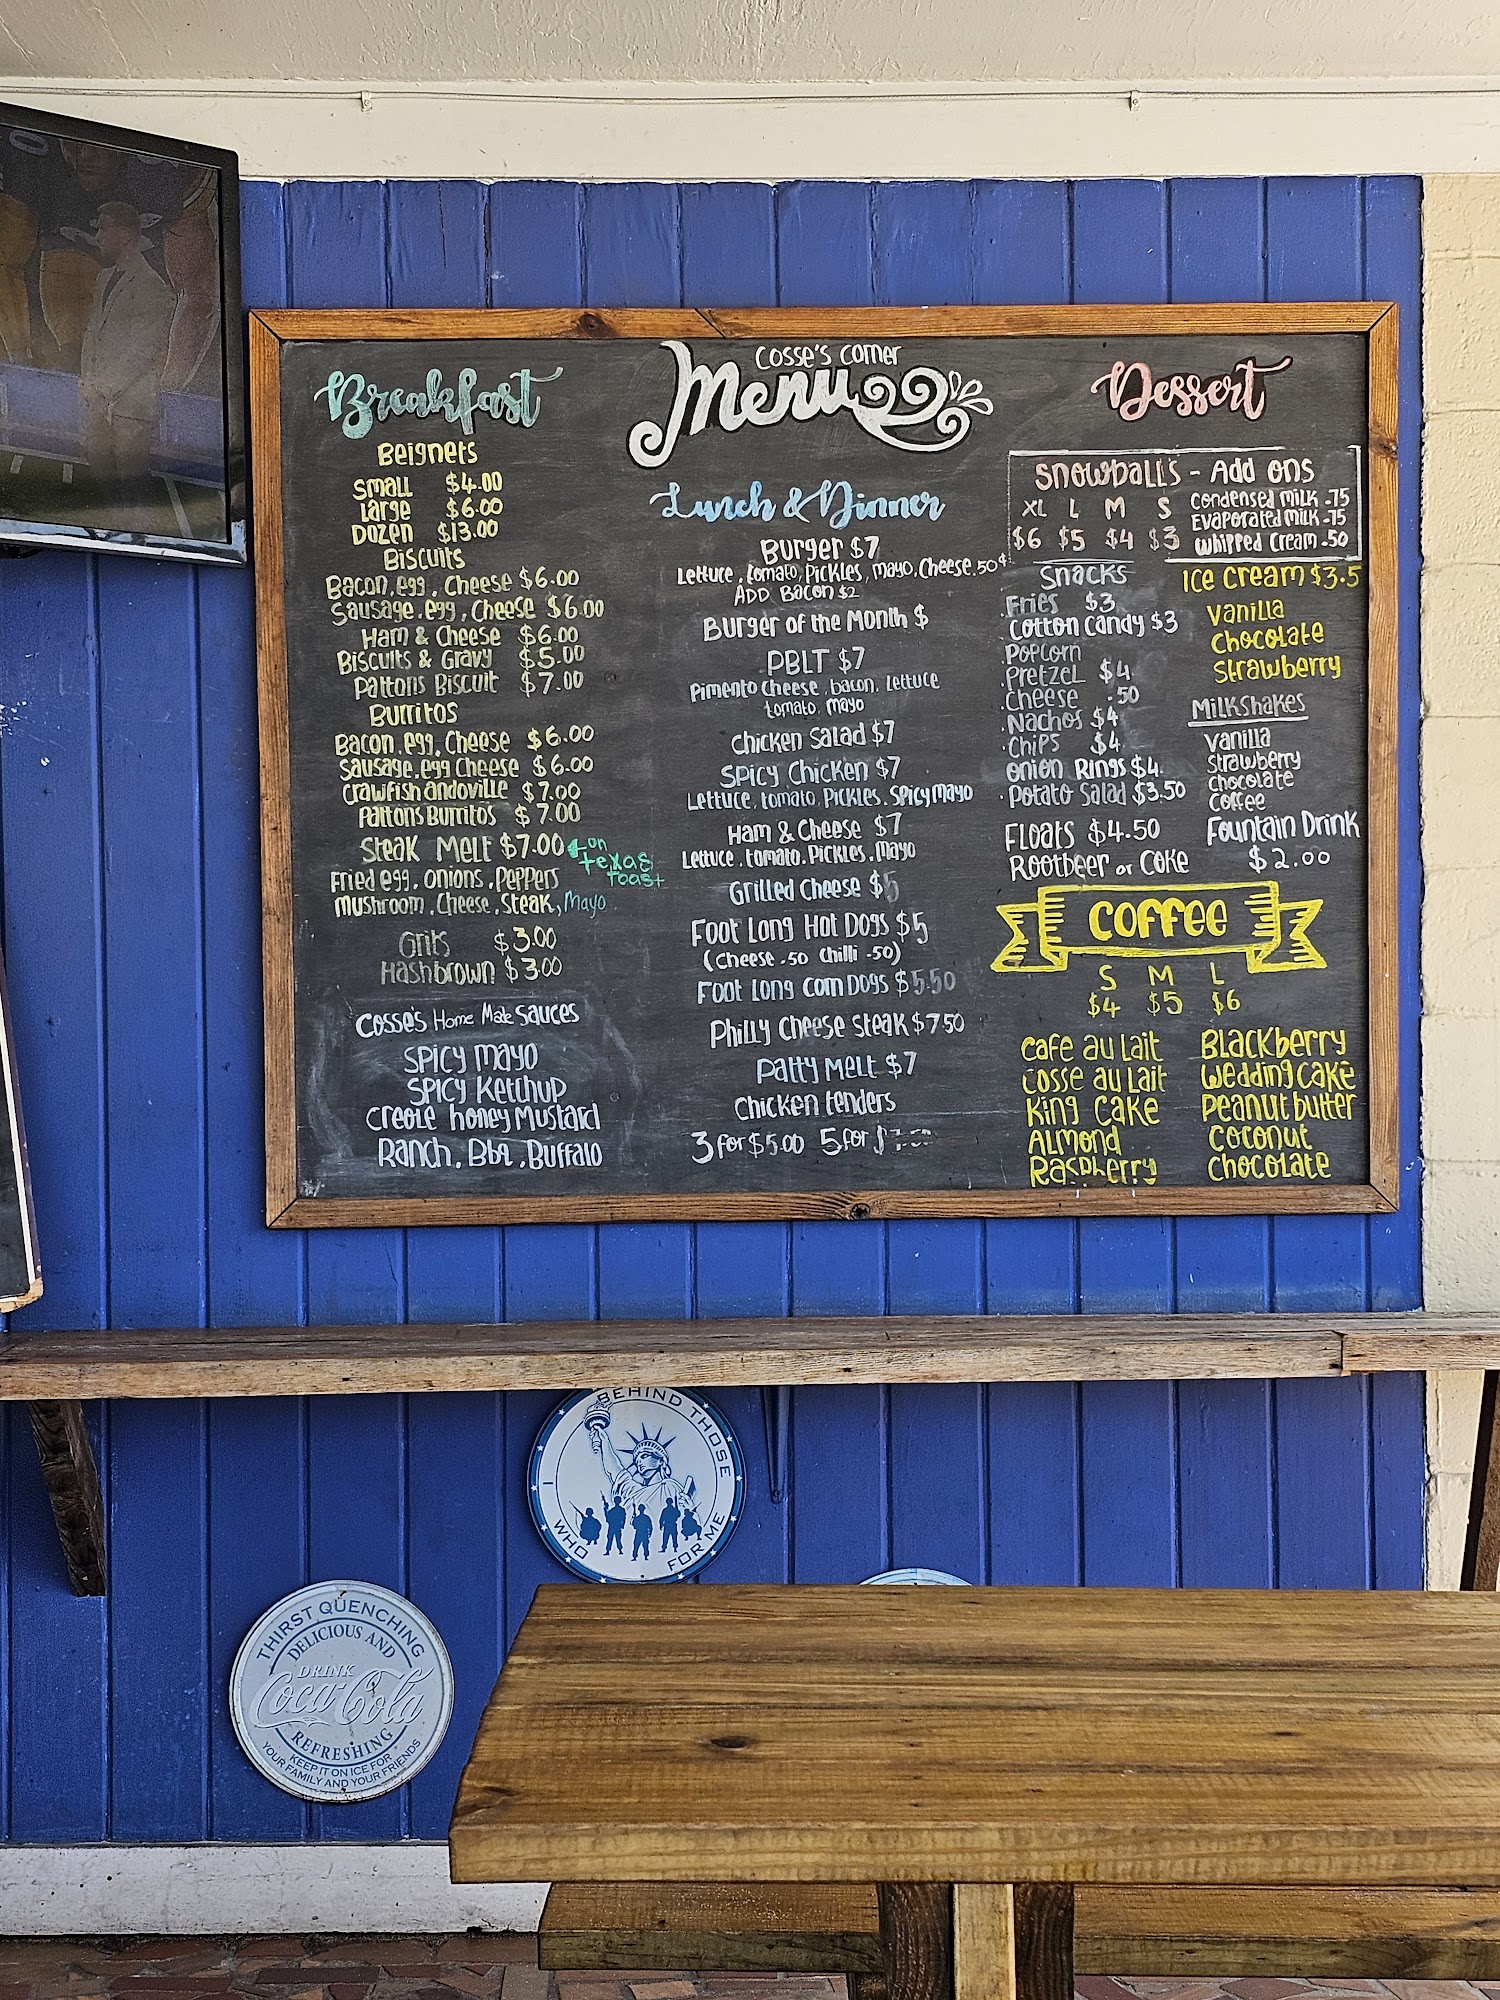 Cosse's Corner
Menu
Breakfast
Beignets
Small $4.00
Large $6.00
Dozen $13.00
Biscuits
Bacon, egg, Cheese $6.00
Sausage, egg, Cheese $6.00
Ham & Cheese $6.00
Biscuits & Gravy $5.00
Pattons Biscuit $7.00
Burritos
Bacon, egg, Cheese $6.00
Sausage, egg Cheese $6.00
Crawfish andoville $7.00
Pattons Burritos $7.00
Steak Melt $7.00 on
Texas
Toast
Fried egg, onions, Peppers
Mushroom, Cheese, Steak, Mayo
Grits $3.00
Hashbrown $3.00
Cosse's Home Made Sauces
Spicy mayo
Spicy Ketchup
Creole honey Mustard
Ranch, Bbq, Buffalo
Lunch & Dinner
Burger $7
Lettuce, tomato, Pickles, mayo, Cheese .50¢
ADD Bacon $2
Burger of the Month $
PBLT $7
Pimento Cheese, bacon, Lettuce
tomato, mayo
Chicken Salad $7
Spicy Chicken $7
Lettuce, tomato, Pickles, Spicy mayo
Ham & Cheese $7
Lettuce, tomato, Pickles, Mayo
Grilled Cheese $5
Foot Long Hot Dogs $5
(Cheese .50 Chilli .50)
Foot Long Corn Dogs $5.50
Philly Cheese Steak $7.50
Patty Melt $7
Chicken tenders
3 for $5.00 5 for $
Dessert
Snowballs - Add ons
XL L M S
$6 $5 $4 $3
Condensed milk .75
Evaporated milk .75
Whipped Cream .50
Snacks
Fries $3
Cotton Candy $3
Popcorn
Pretzel $4
Cheese .50
Nachos $4
Chips $4
Onion Rings $4
Potato Salad $3.50
Floats $4.50
Rootbeer or Coke
Ice Cream $3.5
Vanilla
Chocolate
Strawberry
Milkshakes
Vanilla
Strawberry
Chocolate
Coffee
Fountain Drink
$2.00
Coffee
S M L
$4 $5 $6
Cafe au Lait
Cosse au Lait
King Cake
Almond
Raspberry
Blackberry
Wedding Cake
Peanut butter
Coconut
Chocolate
I
BEHIND THOSE
WHO
FOR ME
THIRST QUENCHING
DELICIOUS AND
DRINK
Coca-Cola
REFRESHING
KEEP IT ON ICE FOR
YOUR FAMILY AND YOUR FRIENDS